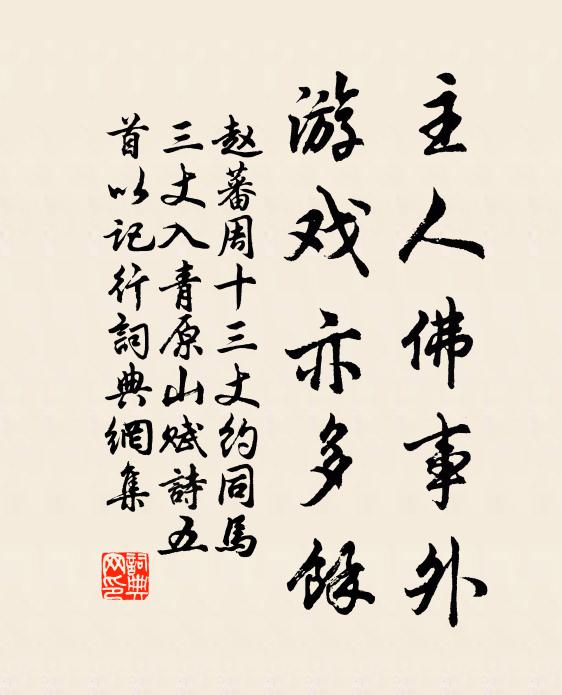 主人佛事外
游戏亦多餘
赵蕃周十三丈约同馬
三丈入青原山赋詩五
首以记行詞典網集
詞典
网印